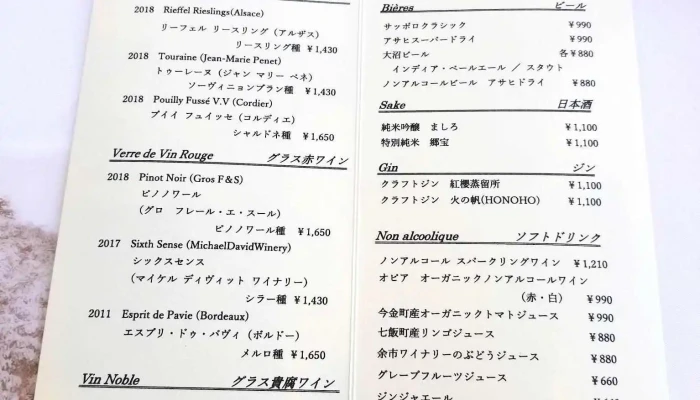 2018 Rieffel Rieslings(Alsace)
リーフェル リースリング（アルザス）
リースリング種 ￥1,430
2018 Touraine (Jean-Marie Penet)
トゥーレーヌ（ジャン マリー ペネ）
ソーヴィニョンブラン種 ￥1,430
2018 Pouilly Fussé V.V (Cordier)
プイイ フュイッセ（コルディエ）
シャルドネ種 ￥1,650
Verre de Vin Rouge グラス赤ワイン
2018 Pinot Noir (Gros F&S)
ピノノワール
（グロ フレール・エ・スール）
ピノノワール種 ￥1,650
2017 Sixth Sense (MichaelDavidWinery)
シックスセンス
（マイケル ディヴィット ワイナリー）
シラー種 ￥1,430
2011 Esprit de Pavie (Bordeaux)
エスプリ・ドゥ・パヴィ（ボルドー）
メルロ種 ￥1,650
Vin Noble グラス貴腐ワイン
Bières ビール
サッポロクラシック ￥990
アサヒスーパードライ ￥990
大沼ビール 各￥880
インディア・ペールエール ／ スタウト
ノンアルコールビール アサヒドライ ￥880
Sake 日本酒
純米吟醸 ましろ ￥1,100
特別純米 郷宝 ￥1,100
Gin ジン
クラフトジン 紅櫻蒸留所 ￥1,100
クラフトジン 火の帆(HONOHO) ￥1,100
Non alcoolique ソフトドリンク
ノンアルコール スパークリングワイン ￥1,210
オピア オーガニックノンアルコールワイン
（赤・白） ￥990
今金町産オーガニックトマトジュース ￥990
七飯町産リンゴジュース ￥880
余市ワイナリーのぶどうジュース ￥880
グレープフルーツジュース ￥660
ジンジャエール